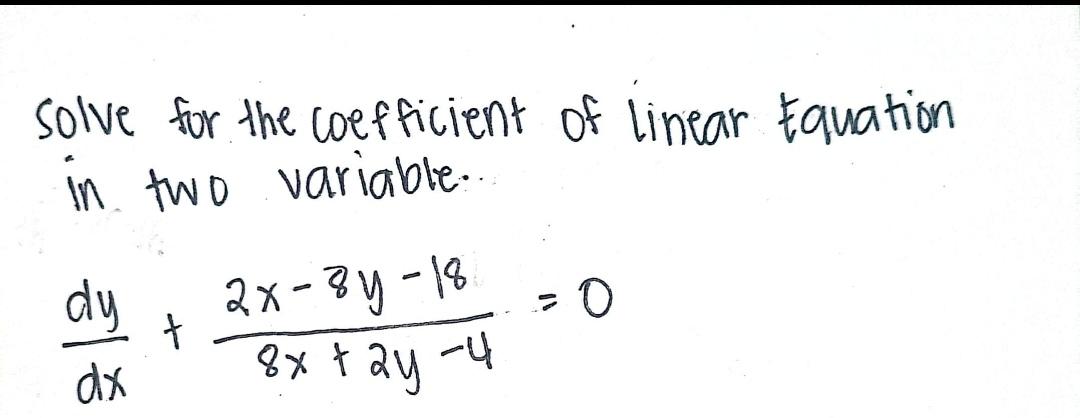 Solve for the coefficient of linear Equation
in two variable..
dy/dx + (2x - 8y - 18)/(8x + 2y - 4) = 0